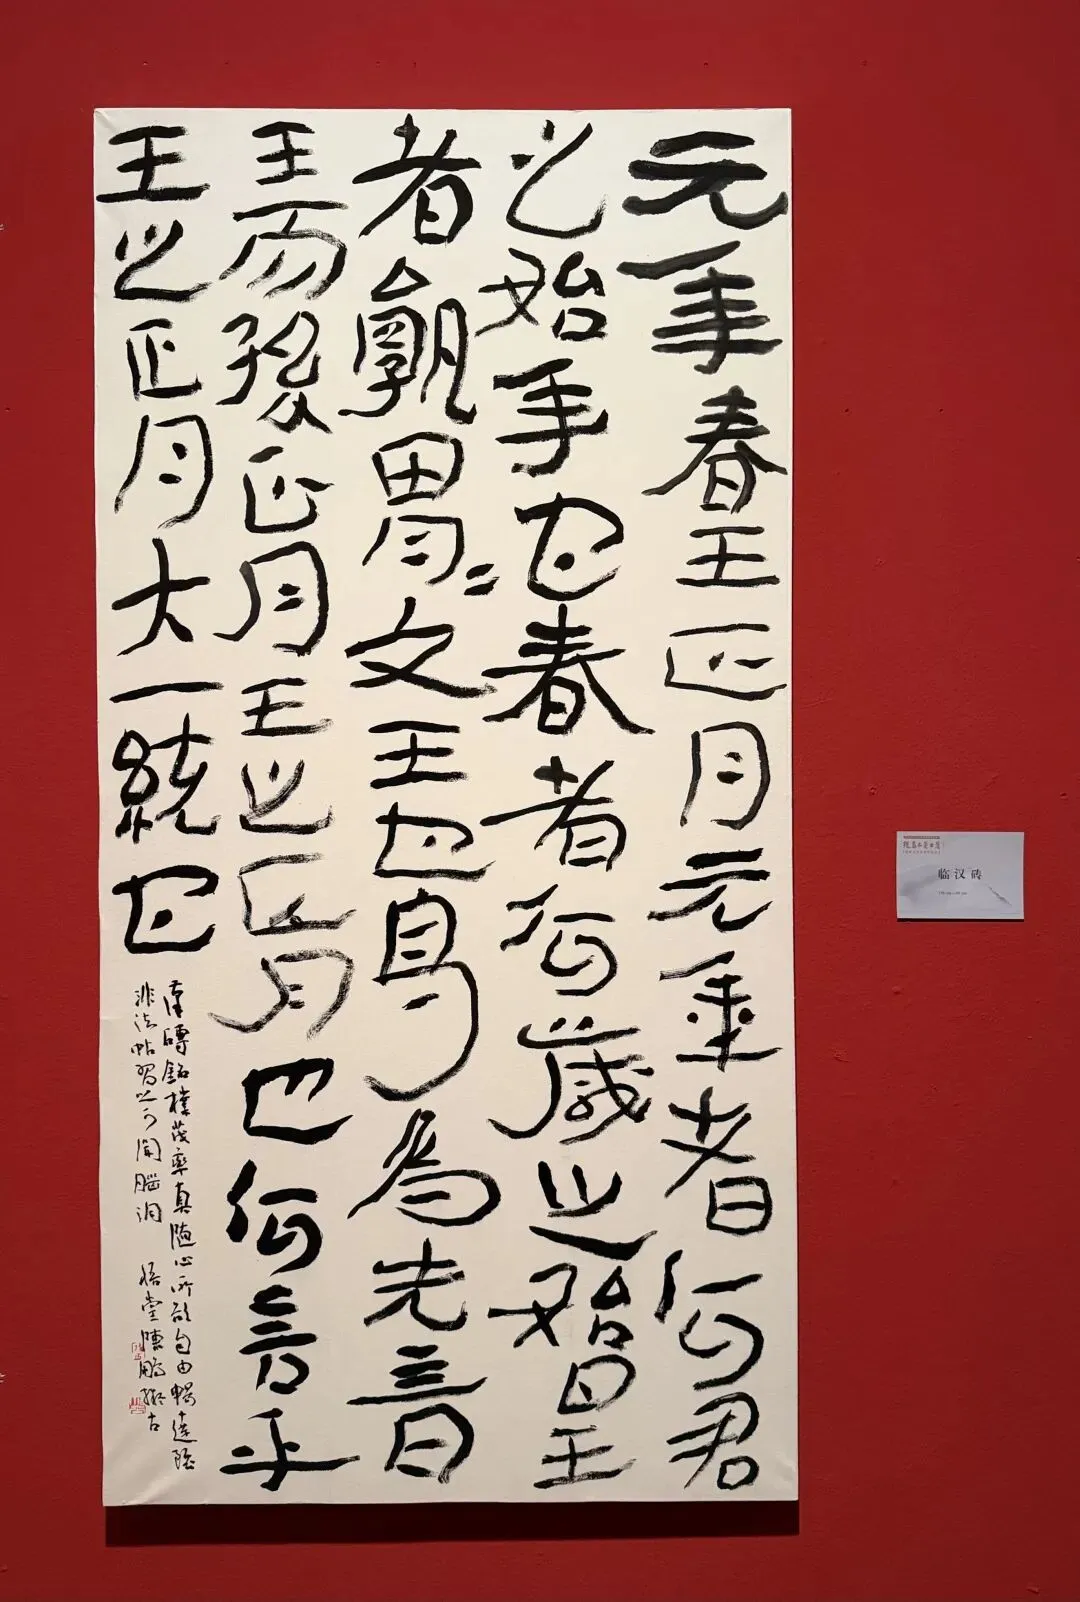 元年春王正月元年者何君
之始年也春者何歲之始王
者孰胃〻文王也曷為先言
王而後正月王之正月也何言乎
王之正月大一統也
漢磚銘樸茂率真隨心所欲自由暢達雖
非法帖習以可開腦洞 悟堂陳鵬擬古
临汉砖